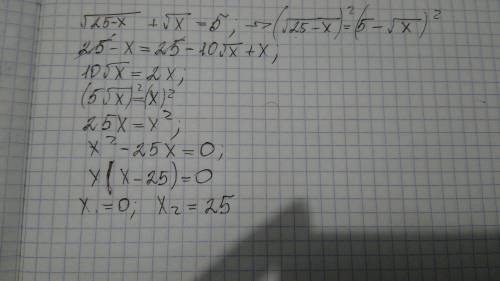 √25-x + √x = 5; -> (√25-x)² = (5 - √x)²
25 - x = 25 - 10√x + x,
10√x = 2x,
(5√x)² = (x)²
25x = x²;
x² - 25x = 0;
x(x - 25) = 0
x₁ = 0; x₂ = 25